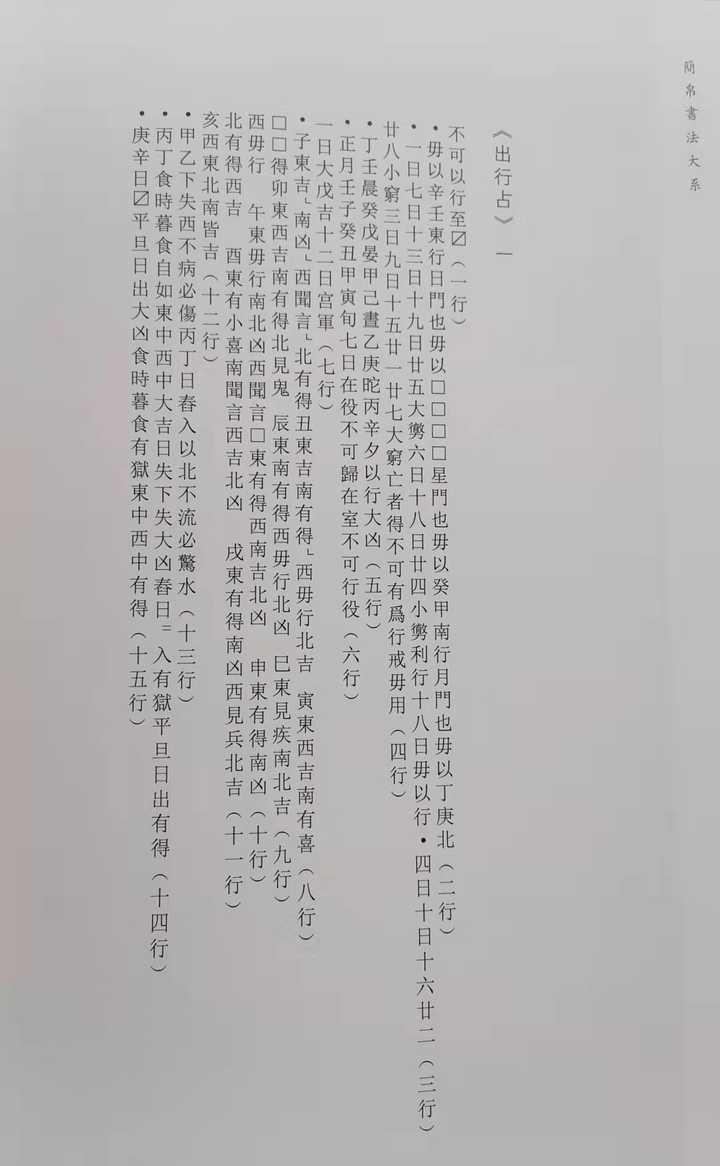 簡帛書法大系
《出行占》一
不可以行至〼（一行）
•毋以辛壬東行日門也毋以□□□□星門也毋以癸甲南行月門也毋以丁庚北（二行）
•一日七日十三日十九日廿五大勶六日十八日廿四小勶利行十八日毋以行•四日十日十六廿二（三行）
廿八小窮三日九日十五廿一廿七大窮亡者得不可有爲行戒毋用（四行）
•丁壬晨癸戊晏甲己晝乙庚㫊丙辛夕以行大凶（五行）
•正月壬子癸丑甲寅旬七日在役不可歸在室不可行役（六行）
一日大戊吉十二日宮軍（七行）
•子東吉∟南凶∟西聞言∟北有得丑東吉南有得∟西毋行北吉　寅東西吉南有喜（八行）
□□得卯東西吉南有得北見鬼　辰東南有得西毋行北凶　巳東見疾南北吉（九行）
西毋行　午東毋行南北凶西聞言□東有得西南吉北凶　申東有得南凶（十行）
北有得西吉　酉東有小喜南聞言西吉北凶　戌東有得南凶西見兵北吉（十一行）
亥西東北南皆吉（十二行）
•甲乙下失西不病必傷丙丁日舂入以北不流必驚水（十三行）
•丙丁食時暮食自如東中西中大吉日失下失大凶舂日〓入有獄平旦日出有得（十四行）
•庚辛日〼平旦日出大凶食時暮食有獄東中西中有得（十五行）